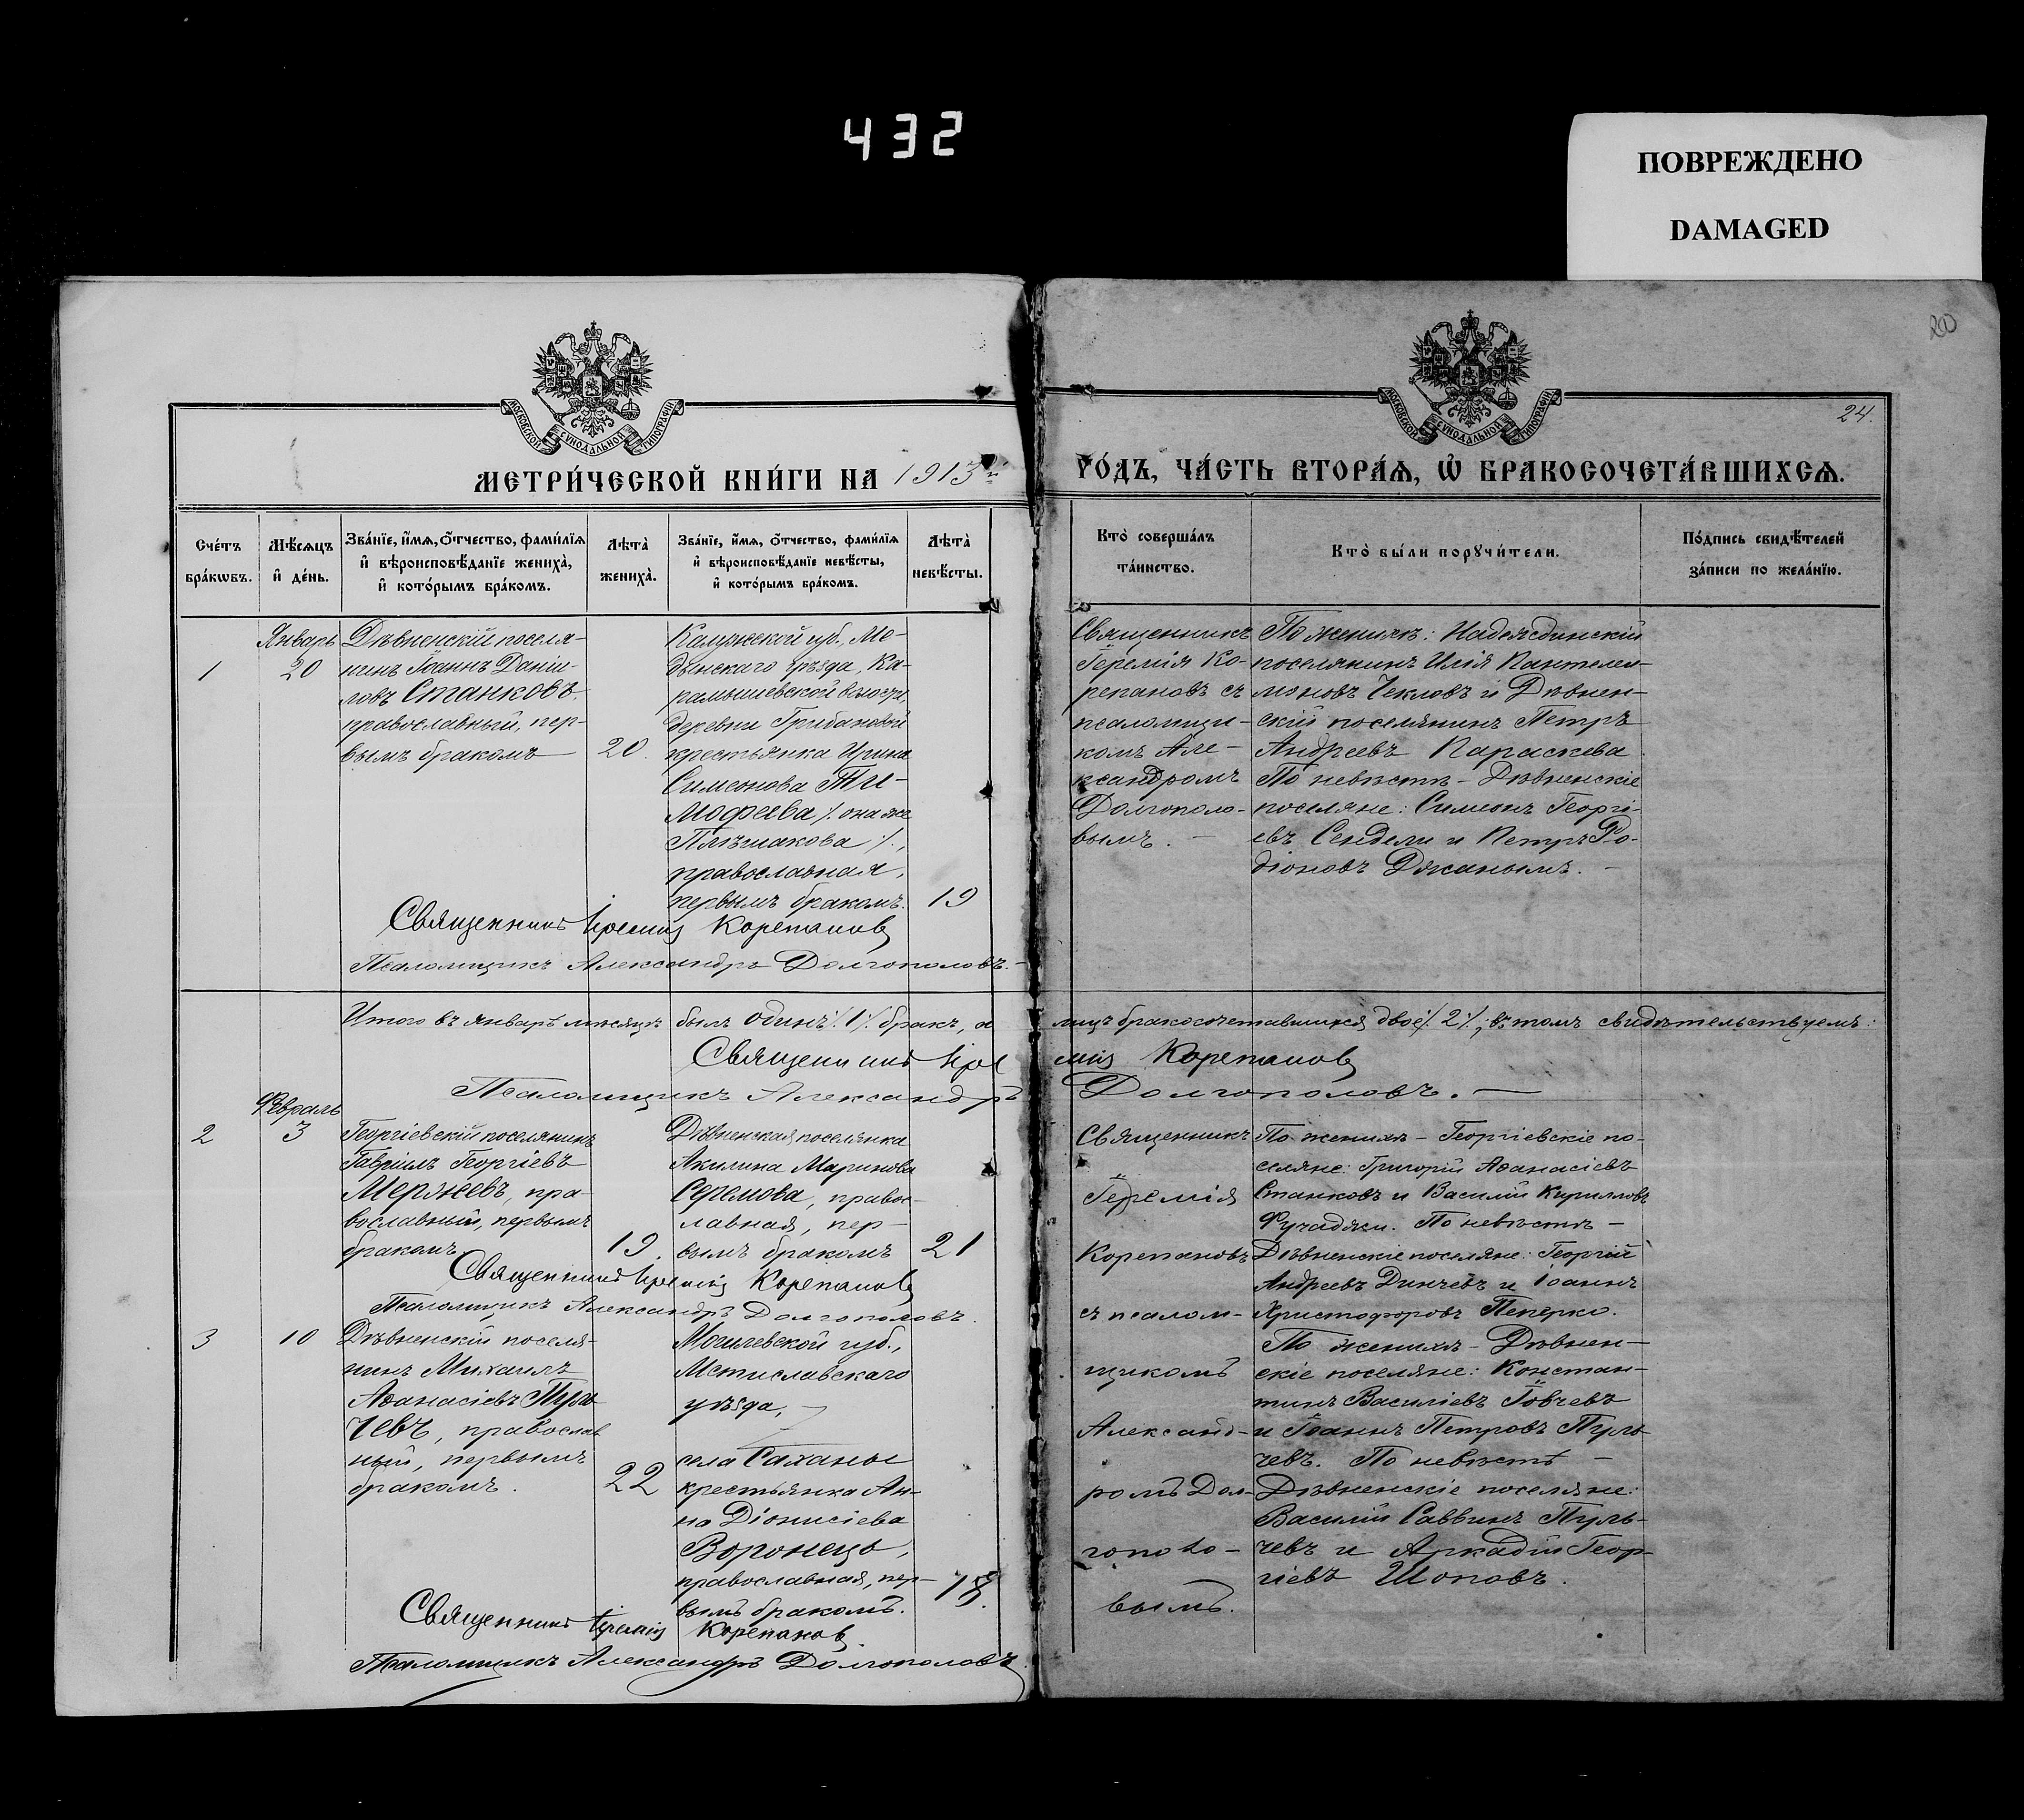 432
ПОВРЕЖДЕНО
DAMAGED
20
24.
МОСКОВСКОЙ СУНОДАЛЬНОЙ ТИПОГРАФІИ
МОСКОВСКОЙ СУНОДАЛЬНОЙ ТИПОГРАФІИ
МЕТРИ́ЧЕСКОЙ КНИ́ГИ НА 1913й
ГО́ДЪ, ЧА́СТЬ ВТОРА́Ѧ, Ѡ҆ БРАКОСОЧЕТА́ВШИХСѦ.
Сче́тъ
бра́кѡвъ.
Мѣ́сѧцъ
и҆ де́нь.
Зва́нїе, и҆́мѧ, ѻ҆́тчество, фами́лїѧ
и҆ вѣроисповѣ́данїе жениха̀,
и҆ кото́рымъ бра́комъ.
Лѣта̀
жениха̀.
Зва́нїе, и҆́мѧ, ѻ҆́тчество, фами́лїѧ
и҆ вѣроисповѣ́данїе невѣ́сты,
и҆ кото́рымъ бра́комъ.
Лѣта̀
невѣ́сты.
Кто̀ соверша́лъ
та́инство.
Кто̀ бы́ли порꙋчи́тели.
По́дпись свидѣ́телей
за́писи по жела́нїю.
1
Январь
20
Дѣвненскій поселя-
нинъ Іоаннъ Даніи-
ловъ Станковъ,
православный, пер-
вымъ бракомъ
20.
Калужской губ., Ме-
дынскаго уѣзда, Ка-
рамышевской волости,
деревни Грибановой
крестьянка Ирина
Симеонова Ти-
мофеева /. она же
Плѣшакова /.,
православная,
первымъ бракомъ.
19
Священникъ
Іеремія Ко-
репановъ съ
псаломщи-
комъ Але-
ксандромъ
Долгополо-
вымъ. -
По женихѣ: Надеждинскій
поселянинъ Илія Пантелеи-
моновъ Чекловъ и Дѣвнен-
скій поселянинъ Петръ
Андреевъ Параскева.
По невѣстѣ - Дѣвненскіе
поселяне: Симеонъ Георгі-
евъ Сендели и Петръ Ро-
діоновъ Джанымъ. -
Священникъ Іеремія Корепановъ
Псаломщикъ Александръ Долгополовъ. -
Итого въ январѣ мѣсяцѣ былъ одинъ /.1/. бракъ, а
лицъ бракосочетавшихся двое /.2/.; въ томъ свидѣтельствуемъ:
Священникъ Іере
мія Корепановъ
Псаломщикъ Александръ
Долгополовъ. -
2
Февраль
3
Георгіевскій поселянинъ
Гавріилъ Георгіевъ
Мержевъ, пра-
вославный, первымъ
бракомъ
19.
Дѣвненская поселянка
Акилина Маринова
Серемова, правос-
лавная, пер-
вымъ бракомъ
21
По женихѣ - Георгіевскіе по-
селяне: Григорій Аѳанасіевъ
Станковъ и Василій Кирилловъ
Фучаджи. По невѣстѣ -
Дѣвненскіе поселяне: Георгій
Андреевъ Динчевъ и Іоаннъ
Христофоровъ Пеперко.
Священникъ Іеремія Корепановъ
Псаломщикъ Александръ Долгополовъ.
3
10
Дѣвненскій поселя-
нинъ Михаилъ
Аѳанасіевъ Пуль
чевъ, православ
ный, первымъ
бракомъ.
22
Могилевской губ.,
Мстиславскаго
уѣзда, -
села Саханы
крестьянка Ан-
на Діонисіева
Воронецъ,
православная, пер-
вымъ бракомъ.
18.
Священникъ
Іеремія
Корепановъ
съ псалом-
щикомъ
Александ-
ромъ Дол-
гополо-
вымъ.
По женихѣ - Дѣвнен-
скіе поселяне: Констан-
тинъ Василіевъ Іовчевъ
и Іоаннъ Петровъ Пуль-
чевъ. По невѣстѣ -
Дѣвненскіе поселяне:
Василій Саввинъ Пуль-
чевъ и Аркадій Геор-
гіевъ Шоповъ.
Священникъ Іеремія Корепановъ
Псаломщикъ Александръ Долгополовъ